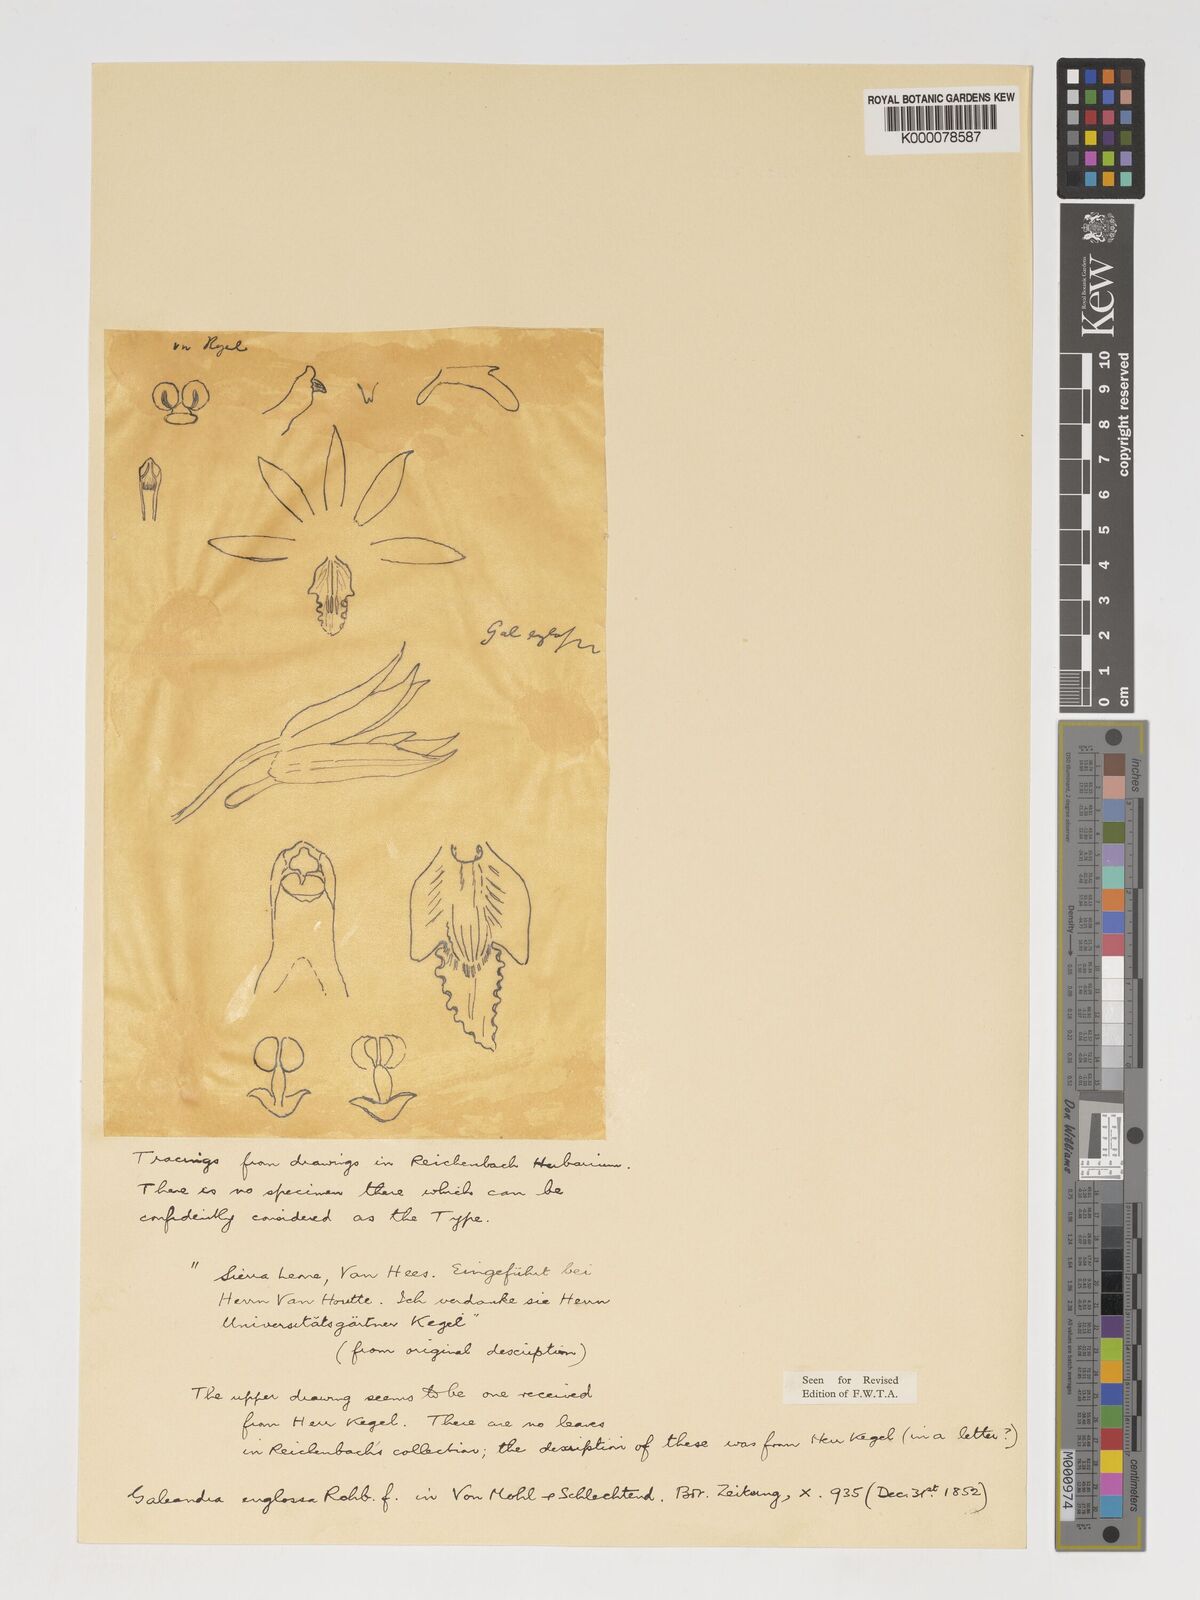 ROYAL BOTANIC GARDENS KEW
K000078587
Tracings from drawings in Reichenbach Herbarium.
There is no specimen there which can be
confidently considered as the Type.
" Sierra Leone, Van Hees. Eingeführt bei
Herrn Van Houtte. Ich verdanke sie Herrn
Universitätsgärtner Kegel"
(from original description)
The upper drawing seems to be one received
from Herr Kegel. There are no leaves
in Reichenbach's collection; the description of these was from Herr Kegel (in a letter?)
Galeandra euglossa Rchb. f. in Von Mohl & Schlechtend. Bot. Zeitung, X. 935 (Dec. 31st 1852)
Seen for Revised
Edition of F.W.T.A.
Kew
Royal Botanic Gardens
0 1 2 3 4 5 6 7 8 9 10
cm
copyright reserved
inches
centimeters
D50 Illuminant, 2 degree observer
Density
Don Williams
M000974